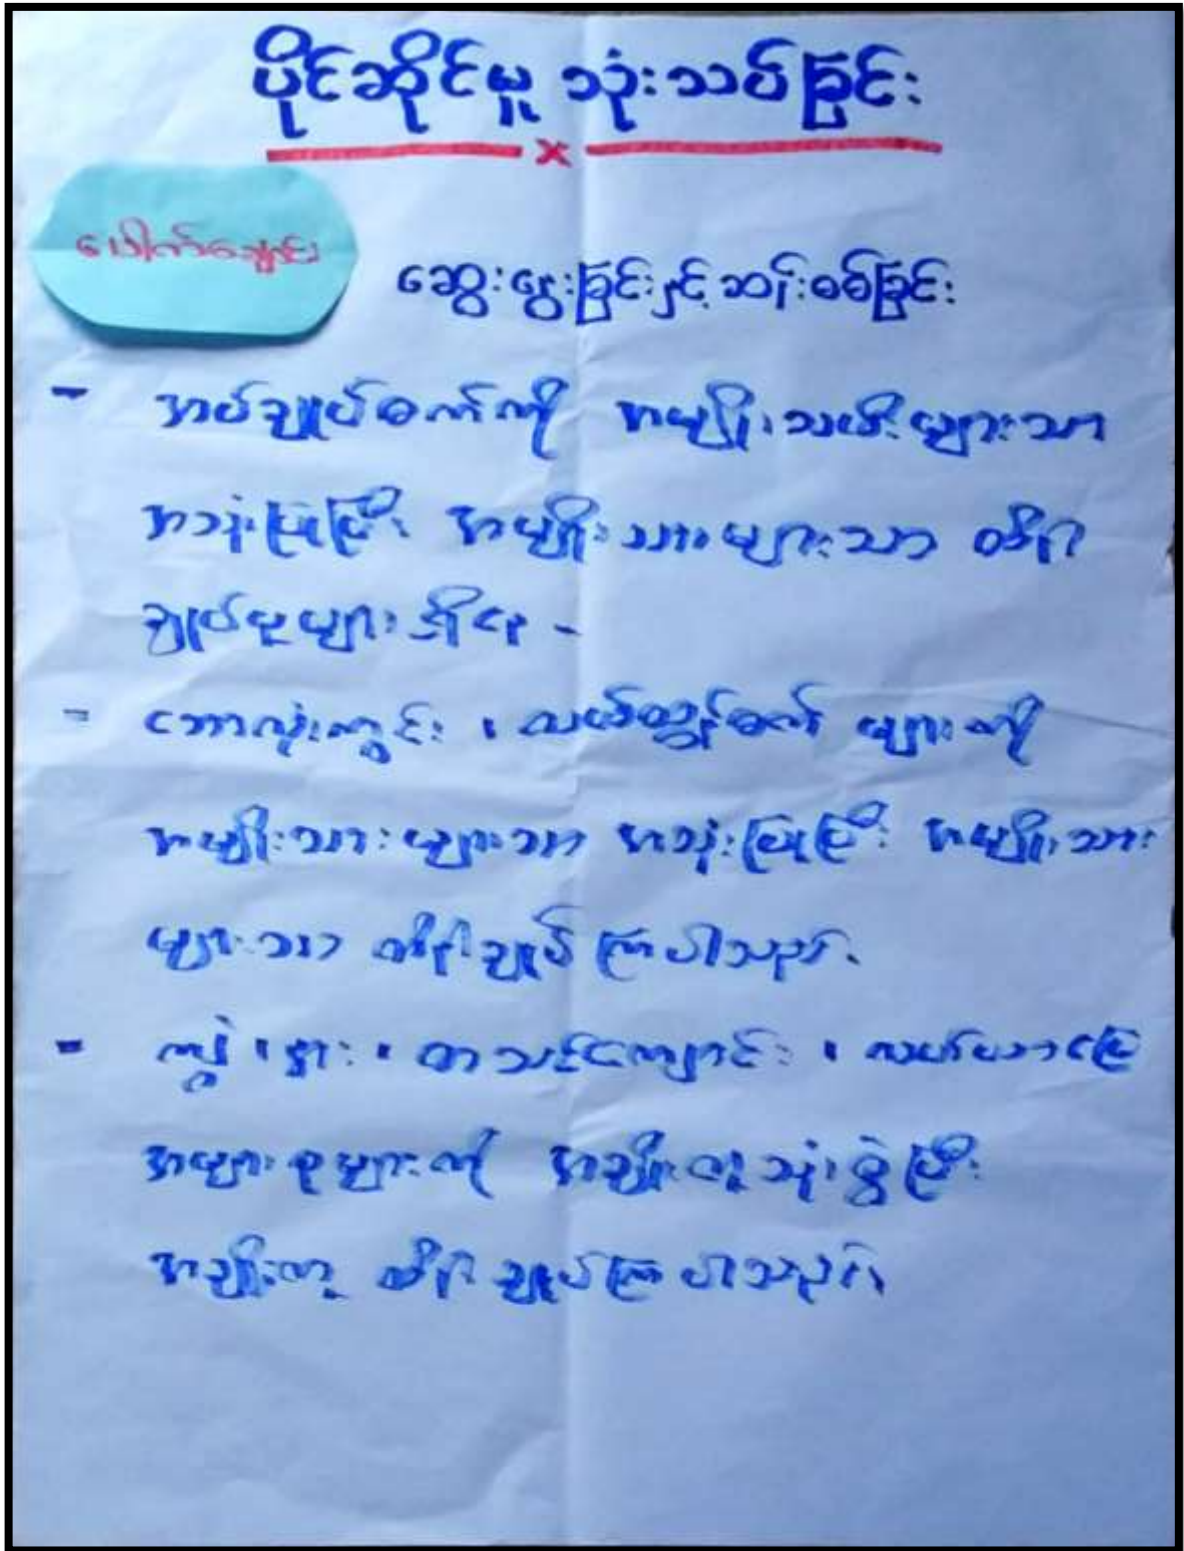 ပိုင်ဆိုင်မှု သုံးသပ်ခြင်း
x
ပေါက်ချောင်း
ဆွေးနွေးခြင်းနှင့် ဆန်းစစ်ခြင်း
- အပ်ချုပ်စက်ကို အမျိုးသမီးများသာ
အသုံးပြုပြီး အမျိုးသားများသာ ထိန်း
ချုပ်မှုများ ရှိနေ -
- ဘောလုံးကွင်း ၊ လယ်ထွန်စက် များကို
အမျိုးသားများသာ အသုံးပြုပြီး အမျိုးသား
များသာ ထိန်းချုပ် ကြပါသည်။
- ကျွဲ ၊ နွား ၊ စာသင်ကျောင်း ၊ လယ်ယာမြေ
အများစုများကို အမျိုးတူ သုံးစွဲပြီး
အမျိုးတူ ထိန်းချုပ်ကြပါသည်။